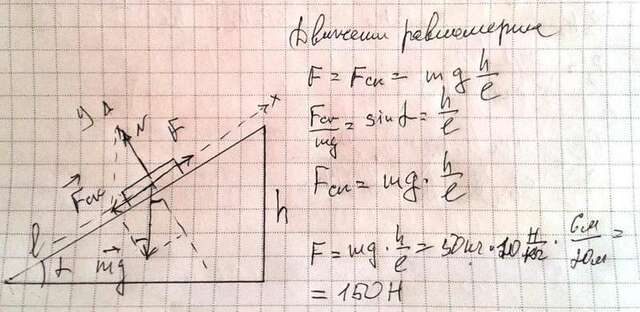 Движение равномерное
F = Fск = mg h/l
Fск/mg = sin α = h/l
Fск = mg · h/l
F = mg · h/l = 50кг · 10 Н/кг · 6м/20м =
= 150Н
y
N
F
x
Fск
l
α
mg
h